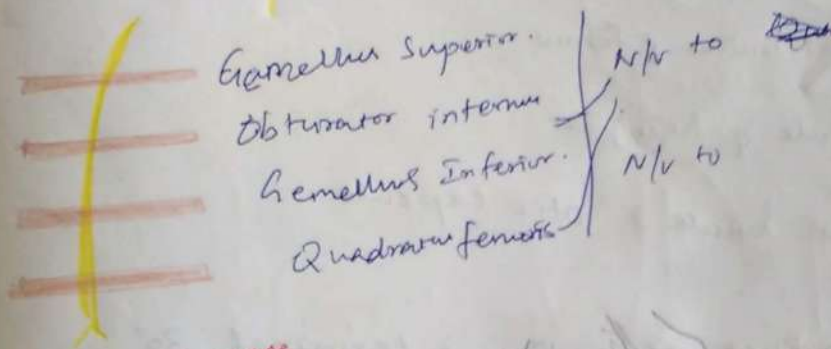 Gamellus Superior.
N/v to
Obturator internus
Gemellus Inferior.
N/v to
Quadratus femoris